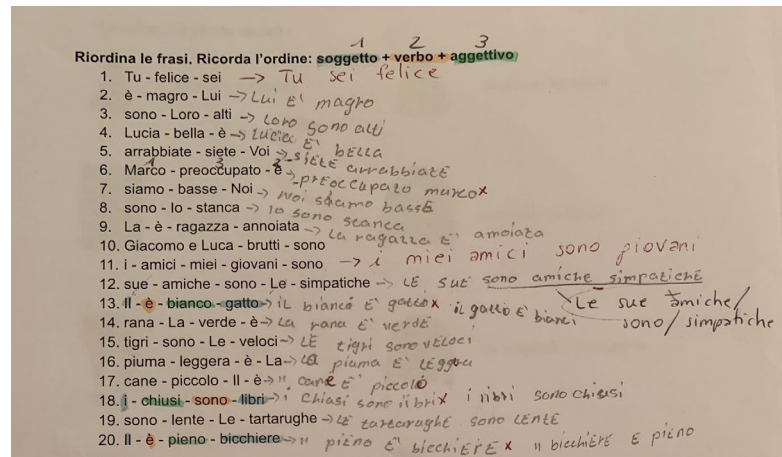 1 2 3
Riordina le frasi. Ricorda l'ordine: soggetto + verbo + aggettivo
1. Tu - felice - sei → Tu sei felice
2. è - magro - Lui → Lui E' magro
3. sono - Loro - alti → Loro sono alti
4. Lucia - bella - è → Lucia E' bELLA
5. arrabbiate - siete - Voi → SIETE arrabbiatE
6. Marco - preoccupato - è → prEoccupato marco x
7. siamo - basse - Noi → Noi siamo bassE
8. sono - Io - stanca → Io sono stanca
9. La - è - ragazza - annoiata → La ragazza E'
10. Giacomo e Luca - brutti - sono
11. i - amici - miei - giovani - sono → i miei amici sono giovani
12. sue - amiche - sono - Le - simpatiche → LE SUE sono amichE simpatichE
Le sue amiche/ sono/ simpatiche
13. Il - è - bianco - gatto → iL bianco E' gatto x il gatto E'
14. rana - La - verde - è → La rana E' vErdE
15. tigri - sono - Le - veloci → LE tigri sono vELoci
16. piuma - leggera - è - La → La piuma E'
17. cane - piccolo - Il - è → il canE E' piccolo
18. i - chiusi - sono - libri → i chiusi sono x i sono chiusi
19. sono - lente - Le - tartarughe → LE tartarughE sono LEntE
20. Il - è - pieno - bicchiere → il piEno E' bicchiErE x il bicchiErE E piEno